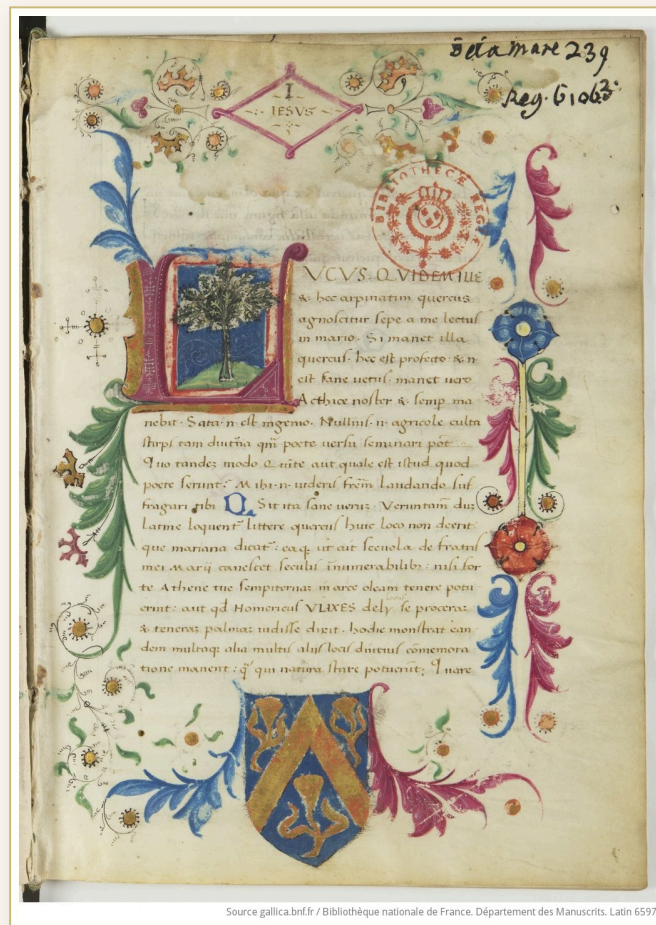 De la mare 239
Reg. 6106 3.
I
IESVS
BIBLIOTHECÆ REGIÆ
LVCVS QVIDEM ILLE
& hec arpinatim quercus
agnoscitur sepe a me lectus
in mario. Si manet illa
quercus. hec est profecto &.n.
est sane uetus. manet uero
Acthice noster & semp ma
nebit. Sata.n. est ingenio. Nullius.n. agricole cultu
stirps tam diutina qm̄ poete uersu seminari pōt
Quo tandez modo Q uīte aut quale est istud quod
poete serunt? Mihi.n. uideris frēm laudando suf
fragari tibi. Q. Sit ita sane ueruz. Veruntam duz
latine loquent littere quercus huic loco non deerit
que mariana dicat: eaq; ut ait sceuola de fratris
mei Marij canescet seculis innumerabilib;: nisi for
te Athene tue sempiternaz in arce oleam tenere potu
erunt: aut qd Homericus VLIXES dely se proceraz
& teneraz palmaz uidisse dixit. hodie monstrat ean
dem multaq; alia multis alijs locis diutius cōmemora
tione manent: q̄ qui natura stare potuerūt; Quare
Source gallica.bnf.fr / Bibliothèque nationale de France. Département des Manuscrits. Latin 6597